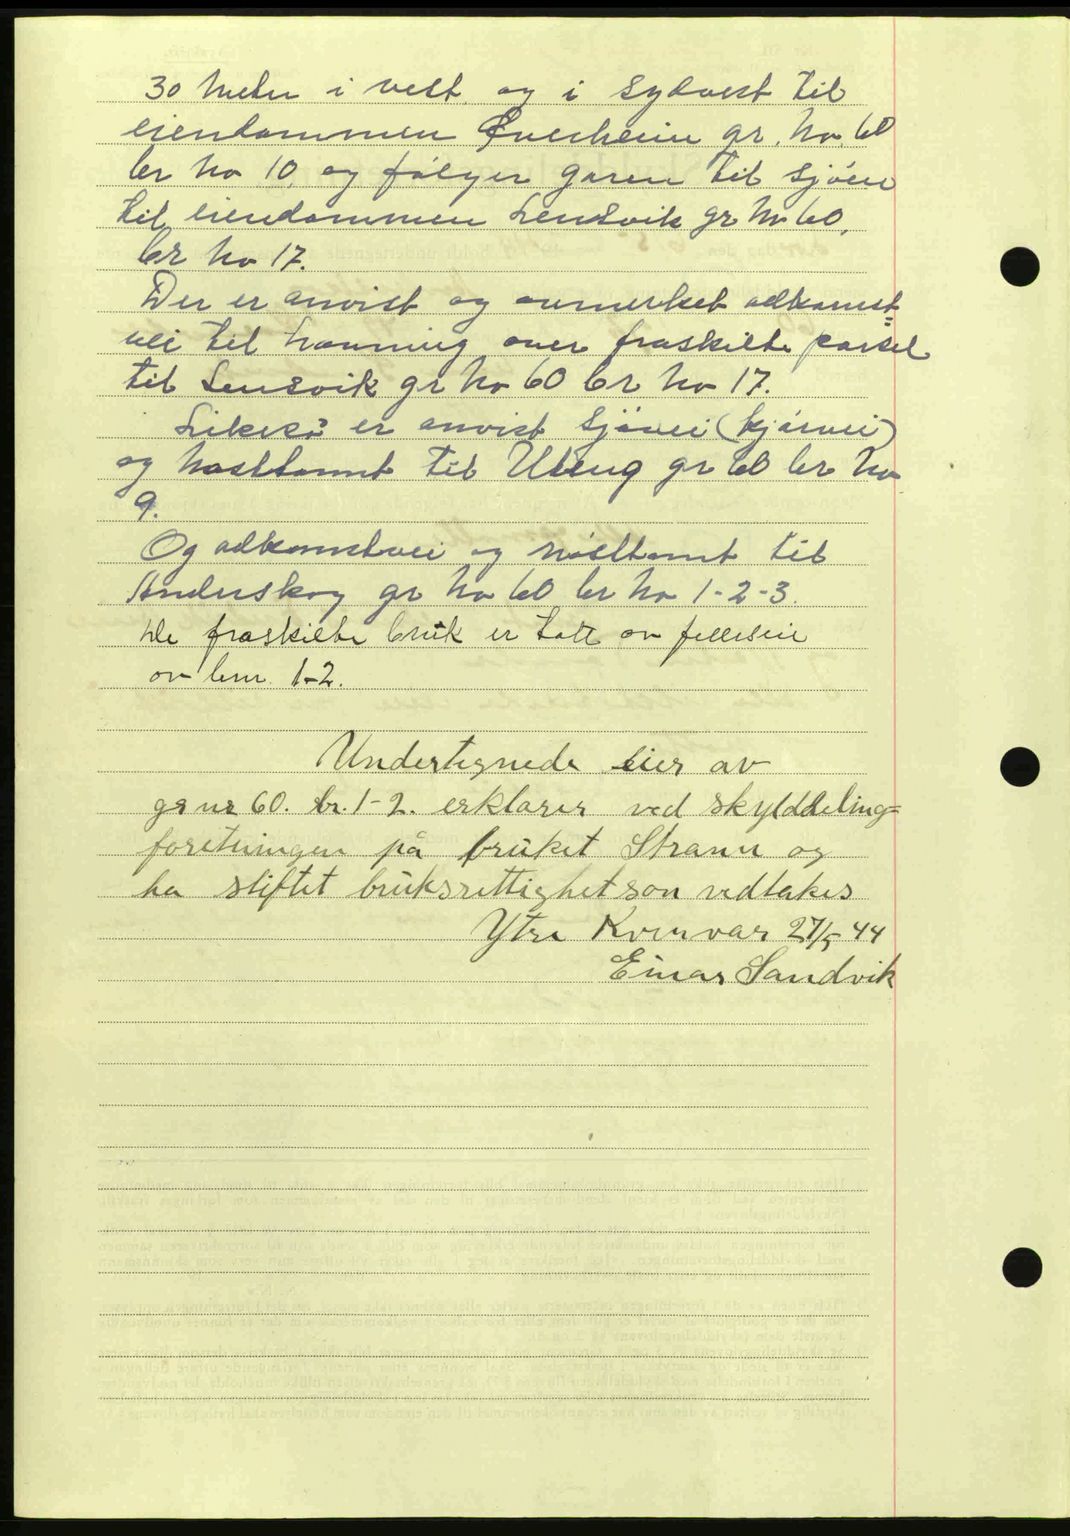 30 meter i vest og i sydvest til
eiendommen Øverheim gr. no 60
br no 10, og følger garen til sjøen
til eiendommen Lensvik gr no 60,
br no 17.
Der er anvist og avmerket adkomst
vei til over fraskilte parsel
til Lensvik gr no 60 br no 17.
Likeså er anvist sjøvei (kjørvei)
og nosttomt til Uteng gr 60 br no
9.
Og adkomstvei og nøsttomt til
Anderskog gr no 60 br no 1-2-3.
De fraskilte bruk er tatt av felleseie
av bnr. 1-2.
Undertegnede eier av
gr nr 60. br. 1-2. erklærer ved skylddeling=
foretningen på bruket Strann og
ha stiftet bruksrettighet son vedtakes
Ytre Kvenvær 27/5 44
Einar Sandvik